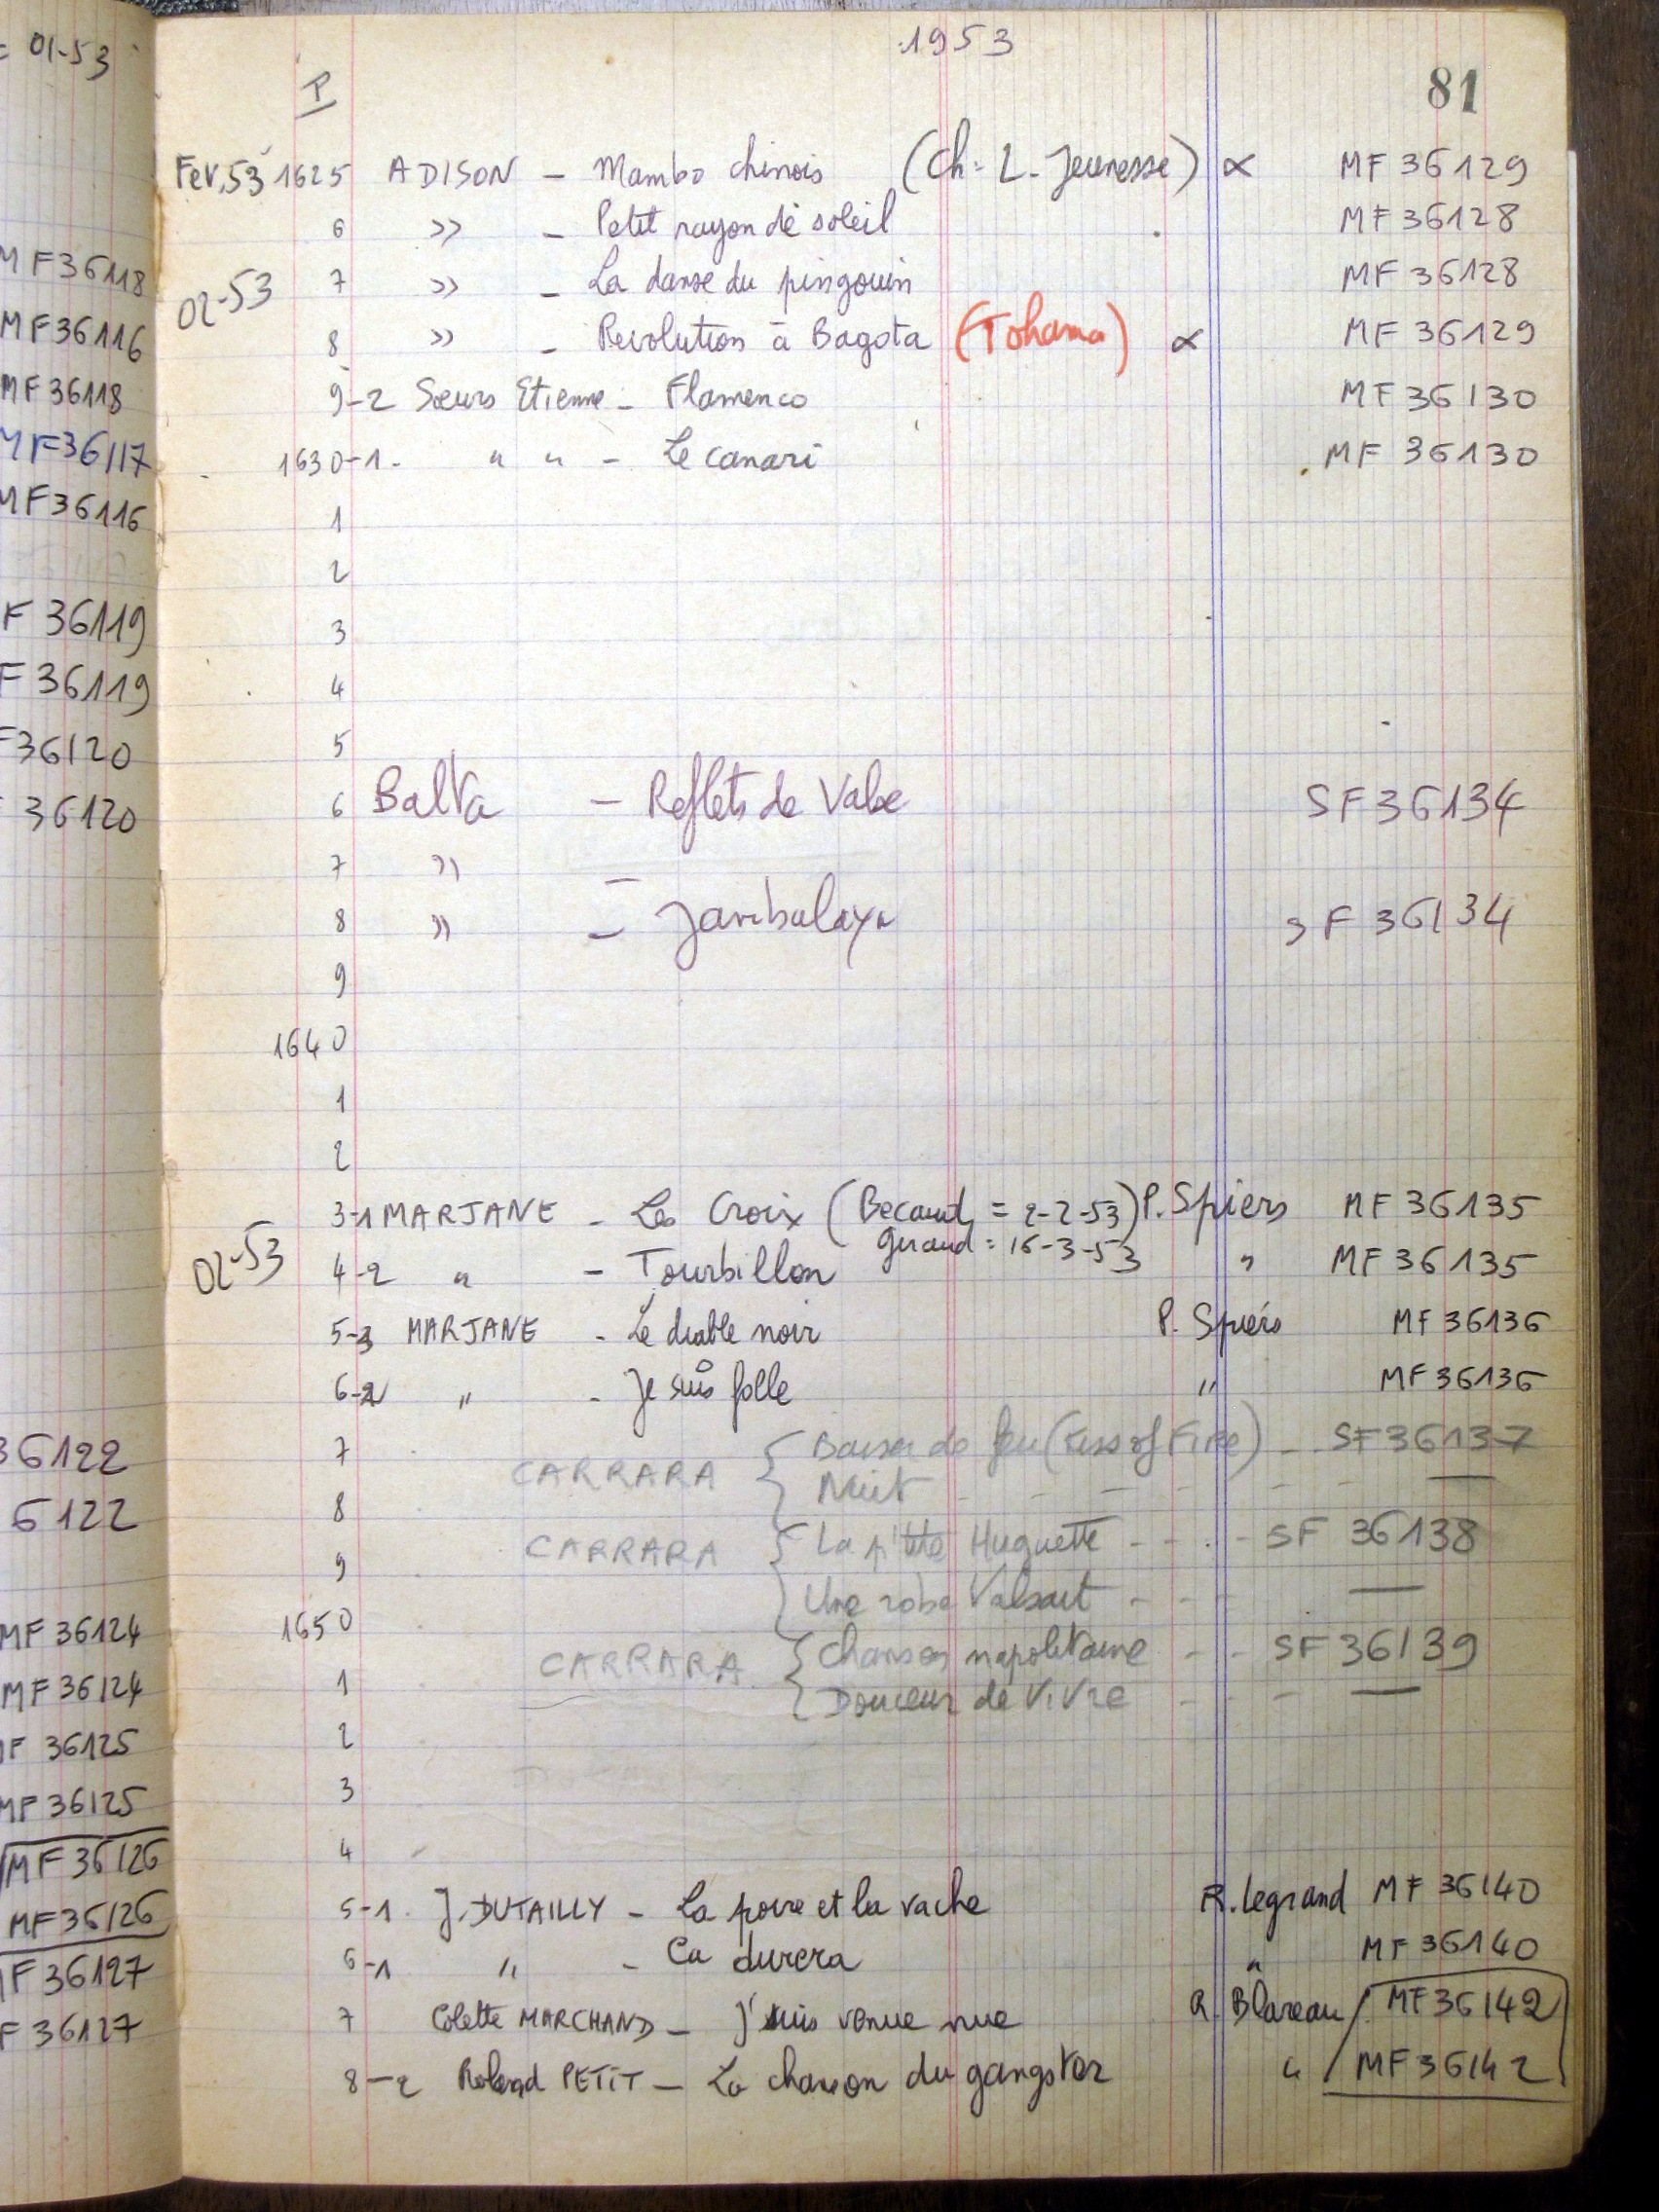 = 01-53
MF36118
MF36116
MF36118
MF36117
MF36116
F 36119
F 36119
F36120
36120
36122
6122
MF 36124
MF 36124
F 36125
MF 36125
MF 36126
MF 36126
F 36127
F 36127
1953
81
P
Fev.53 1625 ADISON - Mambo chinois (Ch: L-Jeunesse) ∝ MF 36129
6 » - Petit rayon de soleil MF 36128
02-53 7 » - La danse du pingouin MF 36128
8 » - Revolution à Bagota (Tohama) ∝ MF 36129
9-2 Sœurs Etienne - Flamenco MF 36130
1630-1- " " - Le canari MF 36130
1
2
3
4
5
6 Balta - Reflets de Valse SF36134
7 » -
8 » - Jambalaya SF 36134
9
1640
1
2
3-1 MARJANE - Les Croix (Becaud = 2-2-53) P. Spiers MF 36135
Giraud = 16-3-53
02-53 4-2 " - Tourbillon " MF 36135
5-3 MARJANE - Le diable noir P. Spiers MF 36136
6-2 " - Je suis folle " MF 36136
7 CARRARA { Baiser de feu (Kiss of Fire) - SF36137
Nuit - - - - - —
8
CARRARA { La p'tite Huguette - - - - SF 36138
9
Une robe Valsait - - - —
1650
CARRARA { Chanson napolitaine - - SF 36139
1 Douceur de Vivre - - - —
2
3
4
5-1 J. DUTAILLY - La poire et la vache R. Legrand MF 36140
6-1 " - Ca durera " MF 36140
7 Colette MARCHAND - J'suis venue nue A. Blareau MF 36142
8-2 Roland PETIT - La chanson du gangster " MF 36142